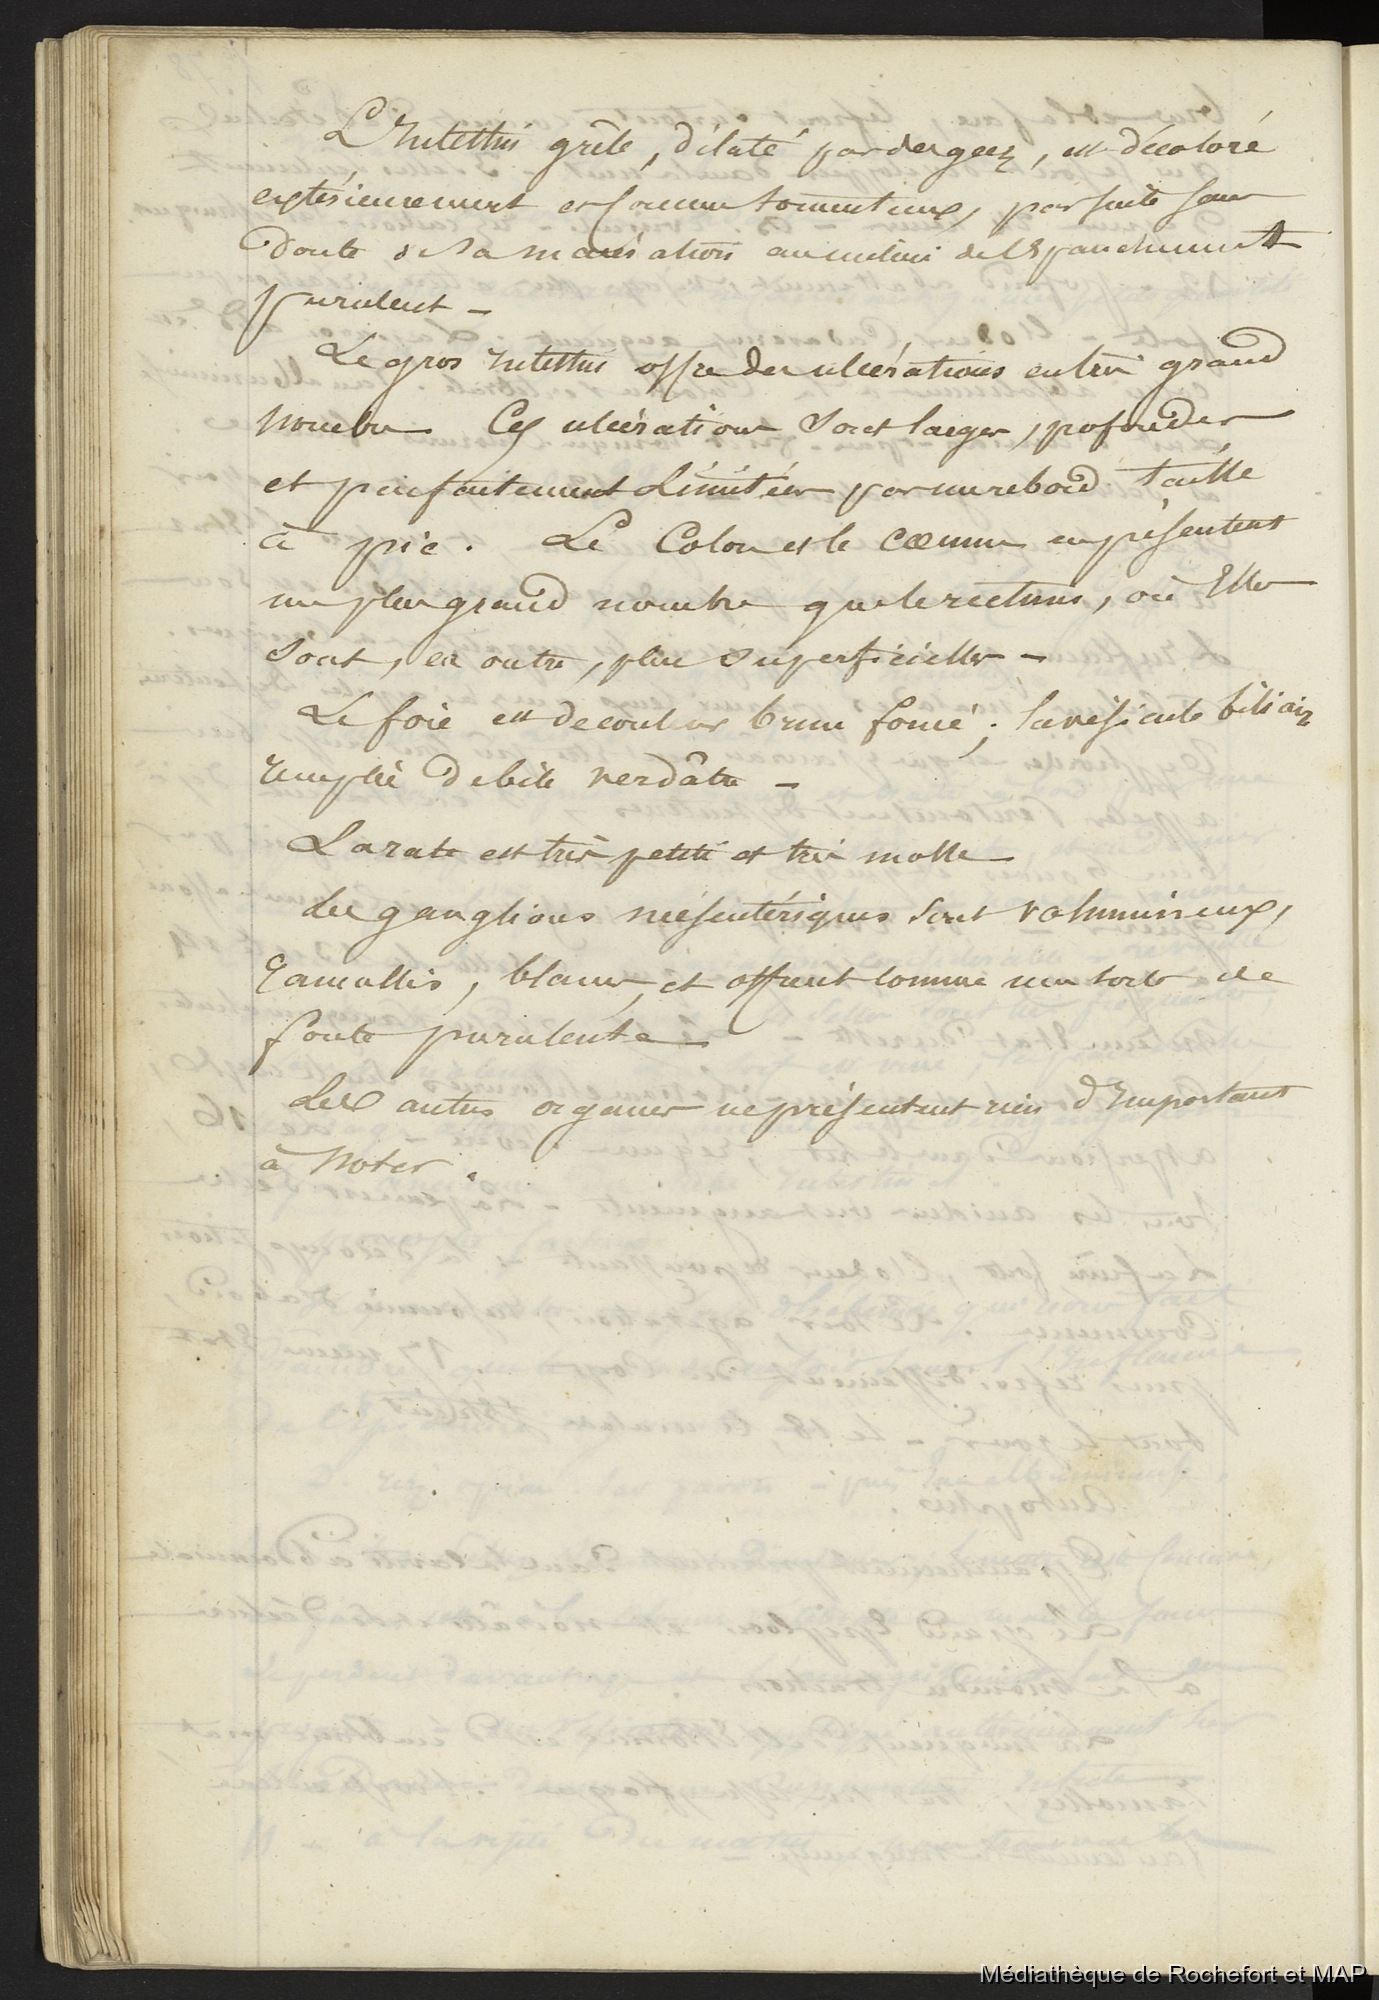 L'Intestin grêle, dilaté par des gaz, est décoloré
extérieurement et comme tomenteux, par suite sans
doute de sa macération au milieu de l'Epanchement
purulent –
Le gros Intestin offre des ulcérations en très grand
nombre Ces ulcérations sont larges, profondes
et parfaitement limitées par un rebord taillé
à pic. Le Colon et le Cœcum en présentent
un plus grand nombre que le rectum, où Elles
sont, en outre, plus superficielles –
Le foie est de couleur brun foncé; la vésicule biliaire
remplie de bile verdâtre –
La rate est très petite et très molle –
Les ganglions mésentériques sont volumineux,
ramollis, blancs, et offrent comme une sorte de
fonte purulente –
Les autres organes ne présentent rien d'Important
à Noter.
Médiathèque de Rochefort et MAP